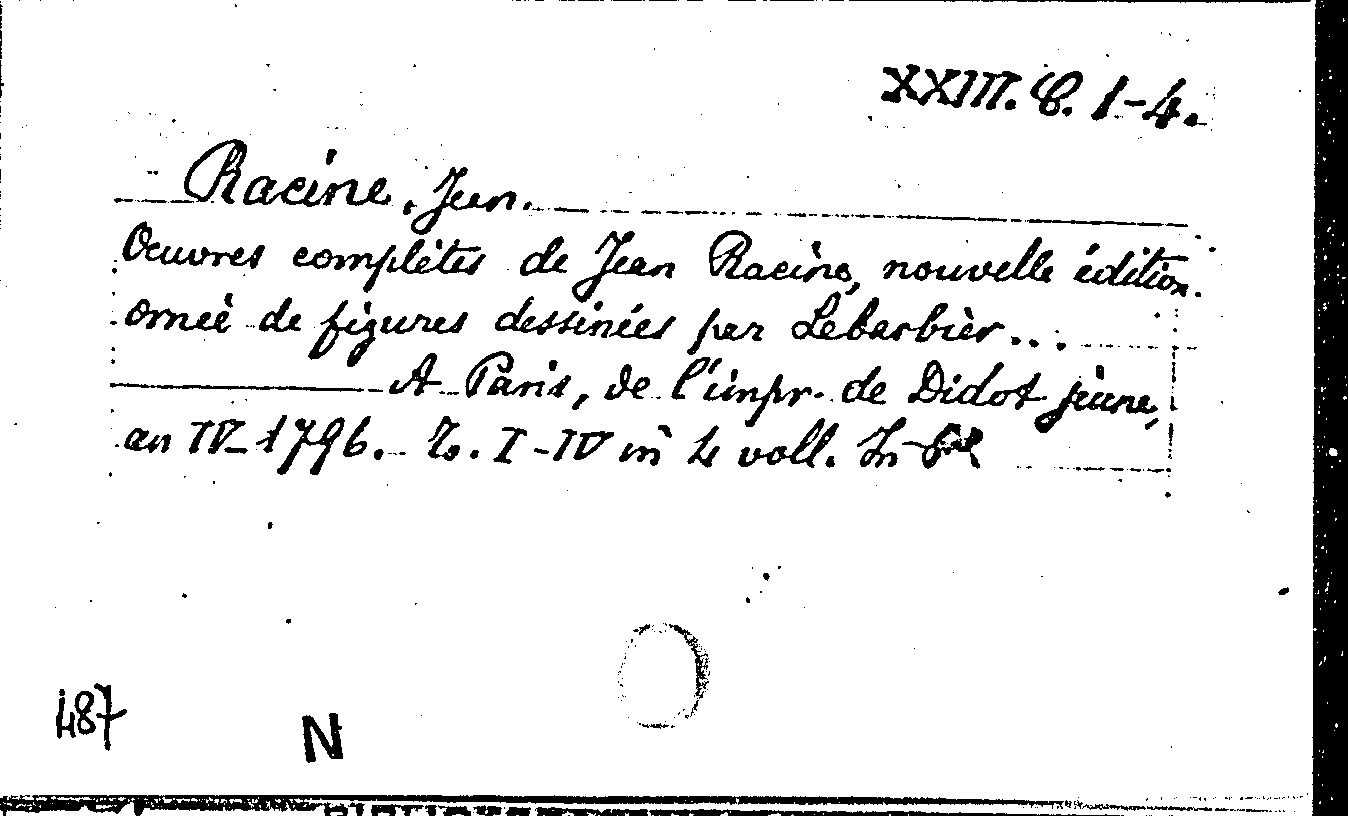 XXIII. C. 1-4.
Racine, Jean.
Oeuvres complètes de Jean Racine, nouvelle édition
ornée de figures dessinées par Lebarbier...
A Paris, de l'impr. de Didot jeune,
an IV-1796. To. I-IV in 4 voll. In-8°
487
N